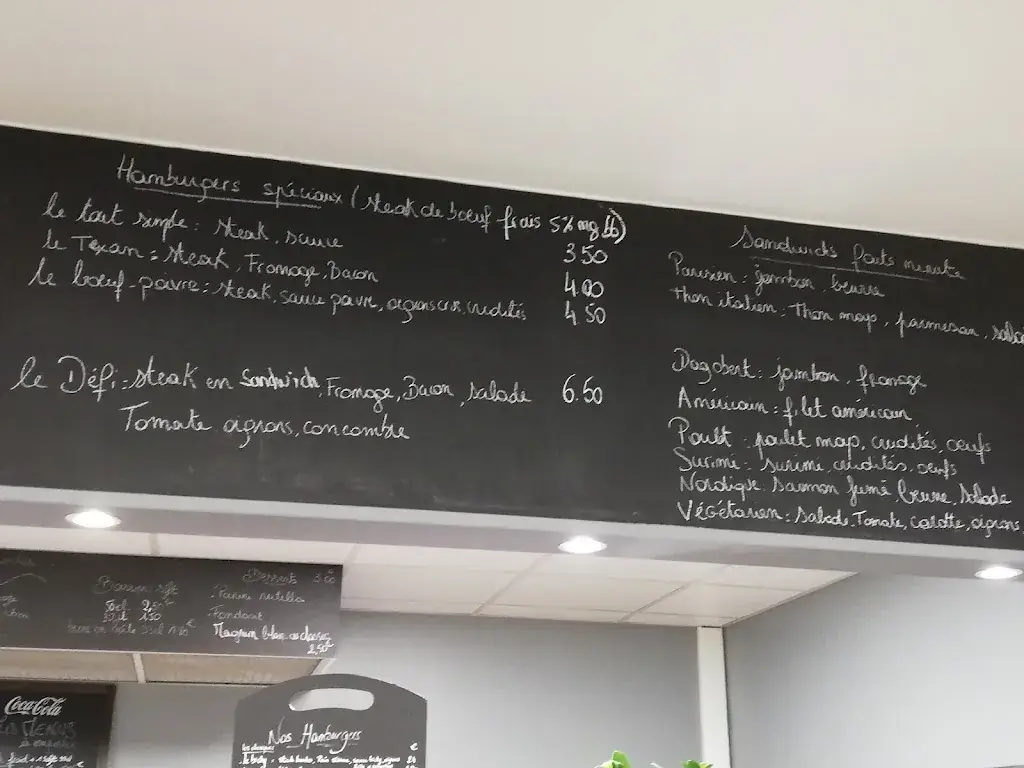 Hamburgers spéciaux (steak de boeuf frais 5% mg
le tout simple : steak, sauce 3.50
le Texan : steak, Fromage, Bacon 4.00
le boeuf-poivre : steak, sauce poivre, oignons crus, crudités 4.50
le Défi : steak en sandwich, Fromage, Bacon, salade 6.50
Tomate oignons, concombre
Sandwichs minute
Parisien : jambon, beurre
thon italien : Thon mayo, parmesan, salade
Dagobert : jambon, fromage
Américain : filet américain
Poulet : poulet mayo, crudités, oeufs
Surimi : surimi, crudités, oeufs
Nordique : saumon fumé beurre, salade
Végétarien : salade, Tomate, carotte, oignons
Desserts 3.00
- Panini nutella
- Fondant
Magnum blanc ou classic
2,50€
Coca-Cola
Nos Hamburgers